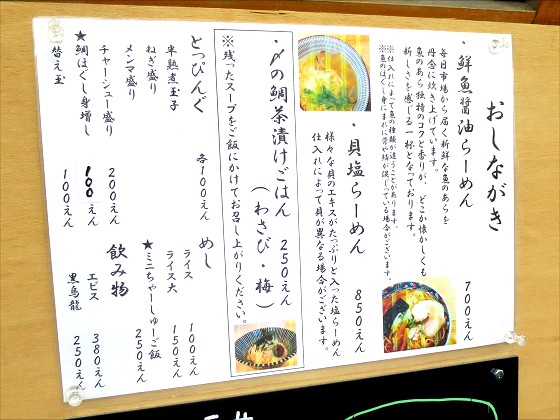 おしながき
・鮮魚醤油らーめん 700えん
毎日市場から届く新鮮な魚のあらを
丹念に炊き上げています。
魚のあら独特のコクと香りが、どこか懐かしくも
新しさを感じる一杯となっております。
※仕入れによって魚の種類が違うことがあります。
※魚のほぐし身にまれに骨や鱗が混じっている場合がございます。
・貝塩らーめん 850えん
様々な貝のエキスがたっぷりと入った塩らーめん
仕入れによって貝が異なる場合がございます。
・〆の鯛茶漬けごはん 250えん
（わさび・梅）
※残ったスープをご飯にかけてお召し上がりください。
とっぴんぐ
半熟煮玉子 各100えん
ねぎ盛り
メンマ盛り
チャーシュー盛り 200えん
★鯛ほぐし身増し 100えん
替え玉 100えん
めし
ライス 100えん
ライス大 150えん
★ミニちゃーしゅーご飯 250えん
飲み物
エビス 380えん
黒烏龍 250えん